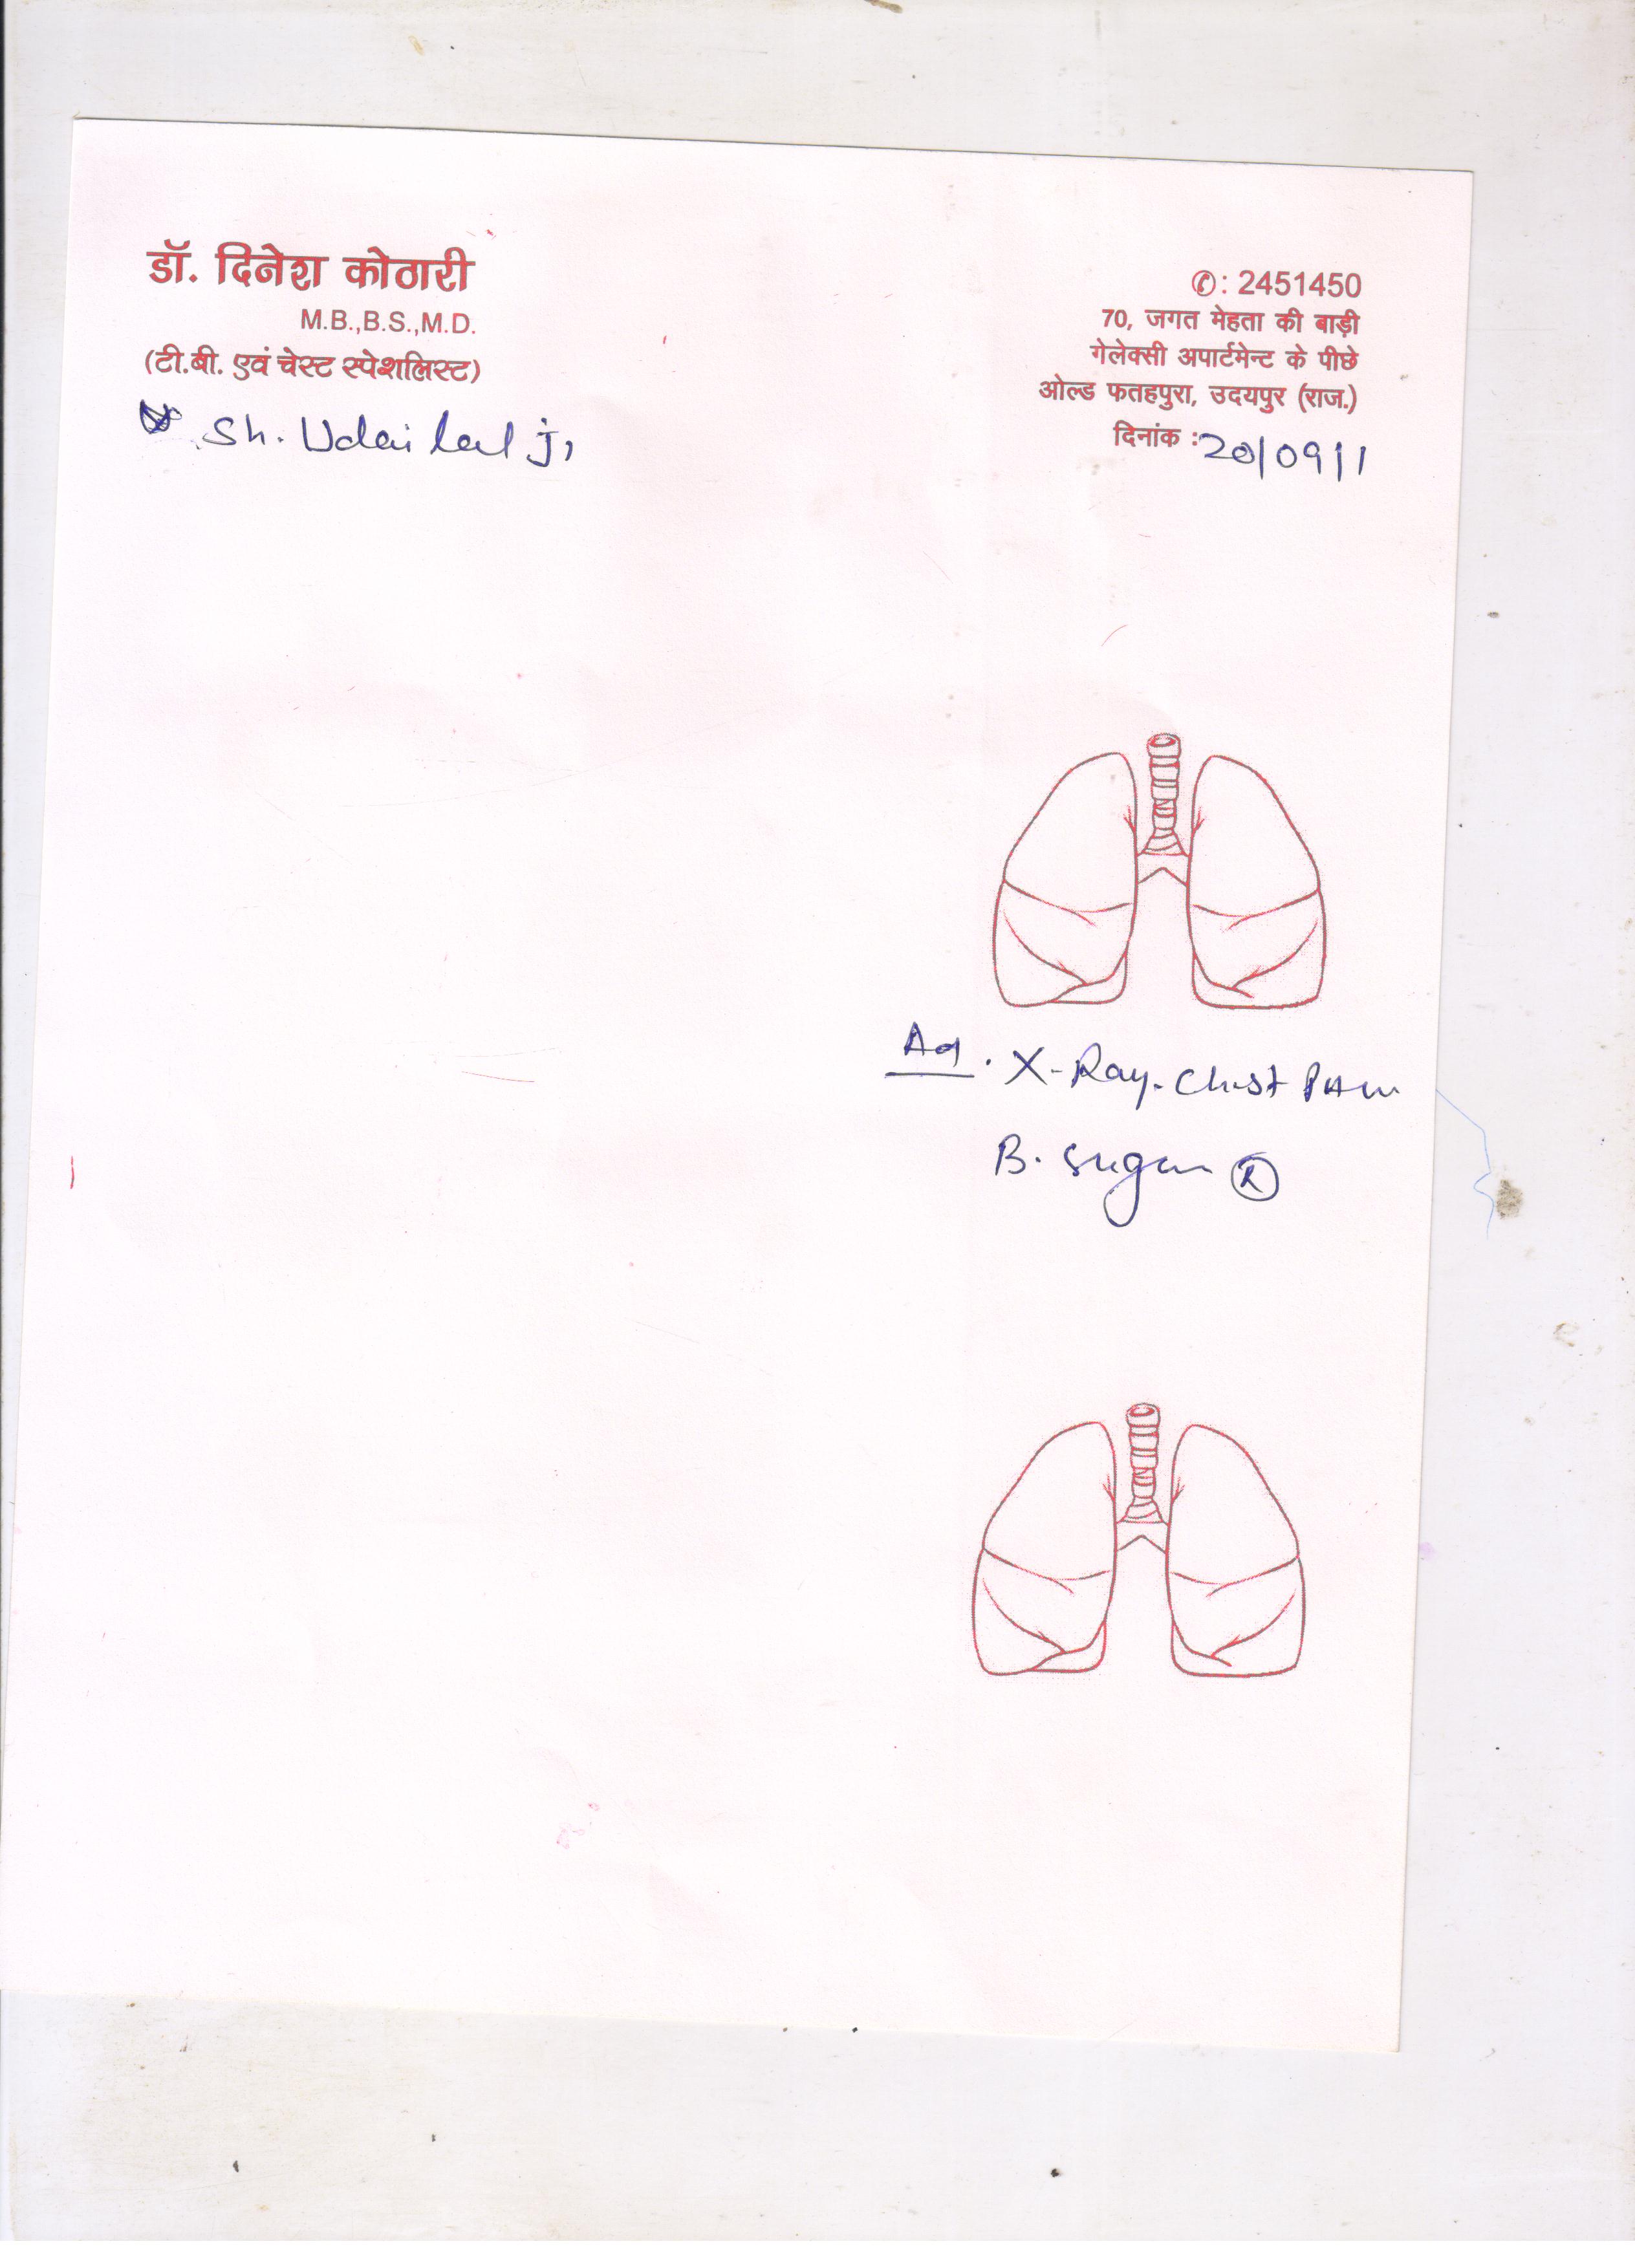 डॉ. दिनेश कोठारी
M.B.,B.S.,M.D.
(टी.बी. एवं चेस्ट स्पेशलिस्ट)
Sh. Udai lal ji
✆: 2451450
70, जगत मेहता की बाड़ी
गेलेक्सी अपार्टमेन्ट के पीछे
ओल्ड फतहपुरा, उदयपुर (राज.)
दिनांक : 20/09/1
X-Ray. Chest
B. sugar Ⓡ